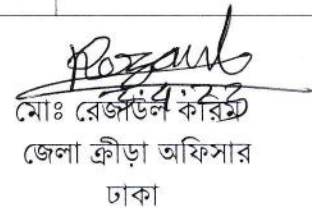 মোঃ রেজাউল করিম
জেলা ক্রীড়া অফিসার
ঢাকা